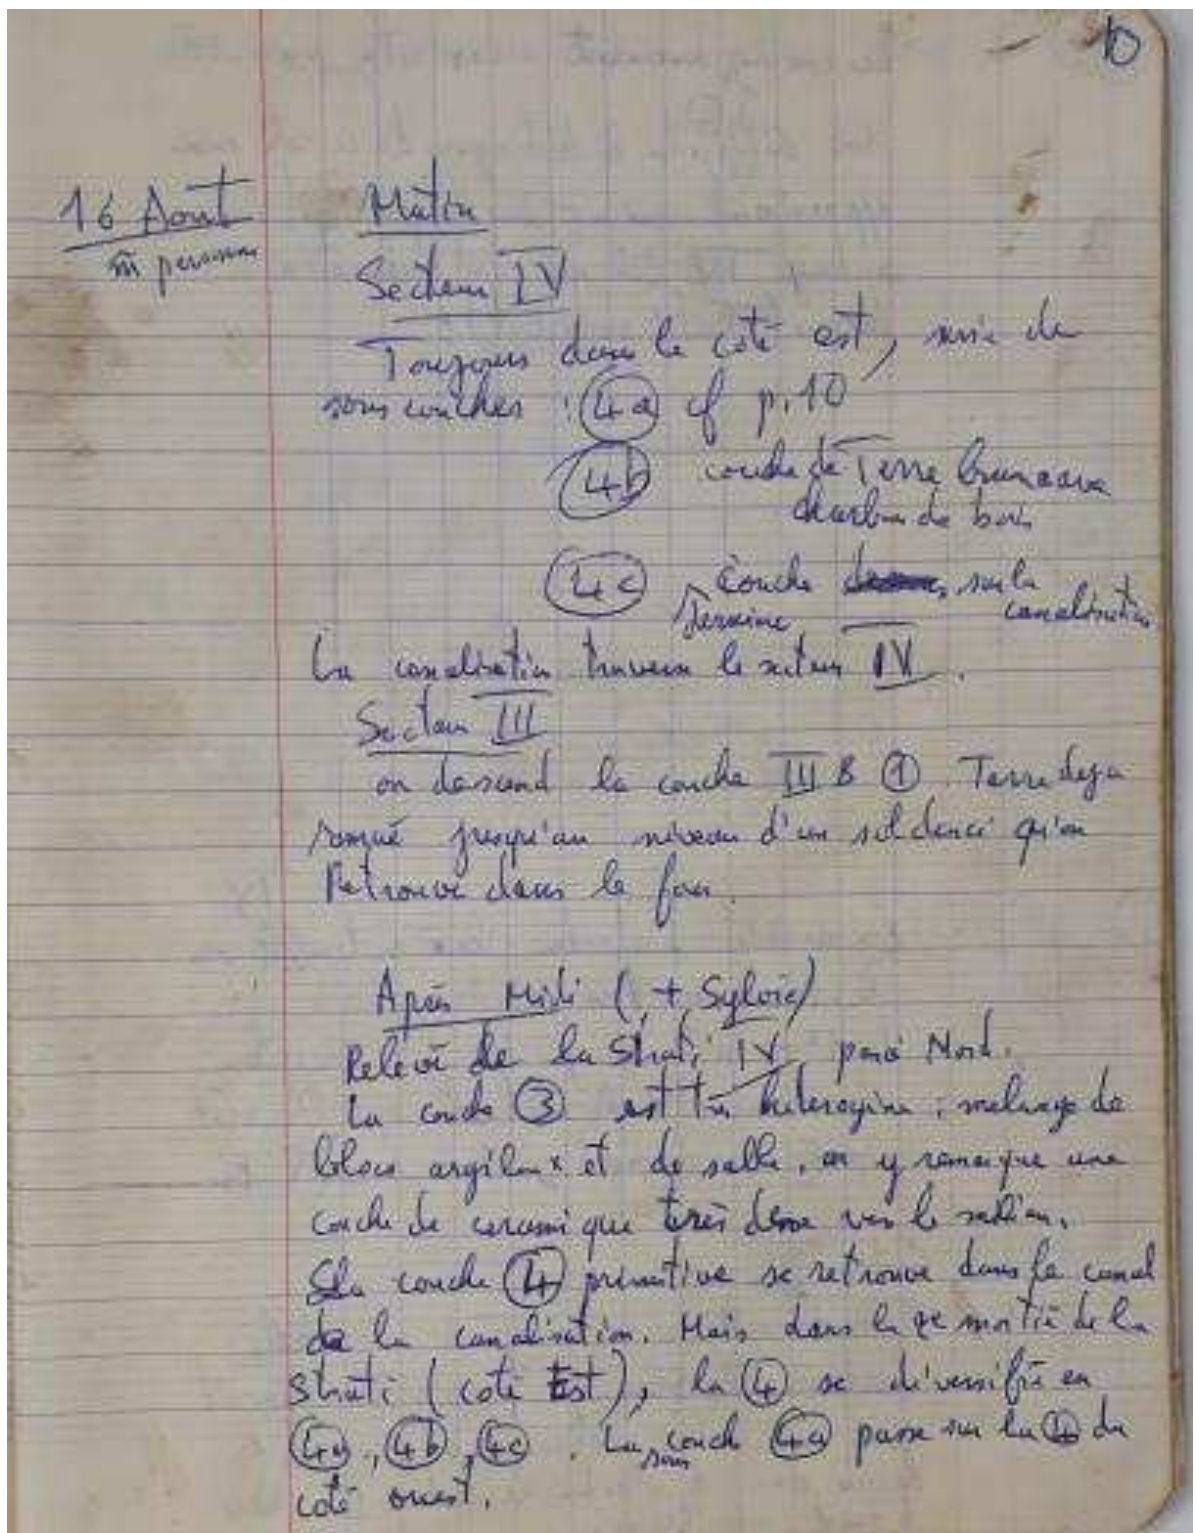 10
16 Aout
m̄ personnes
Matin
Secteur IV
Toujours dans le coté est, mise de
sous couches : (4a) cf p. 10
(4b) couche de Terre brune avec
charbon de bois
(4c) couche sur la
dernière canalisation
La canalisation traverse le secteur IV.
Secteur III
on descend la couche III B (1) Terre deja
jusqu'au niveau d'un sol qu'on
Retrouve dans le four.
Après Midi ( + Sylvie)
Relevé de la Strati IV paroi Nord.
La couche (3) est très heterogène ; melange de
blocs argileux et de sable, on y remarque une
couche de ceramique très dense vers le milieu.
La couche (4) primitive se retrouve dans le canal
de la canalisation. Mais dans la 2e moitié de la
Strati (coté Est), la (4) se diversifie en
(4a), (4b), (4c). La sous couche (4a) passe sur la (4) du
coté ouest.